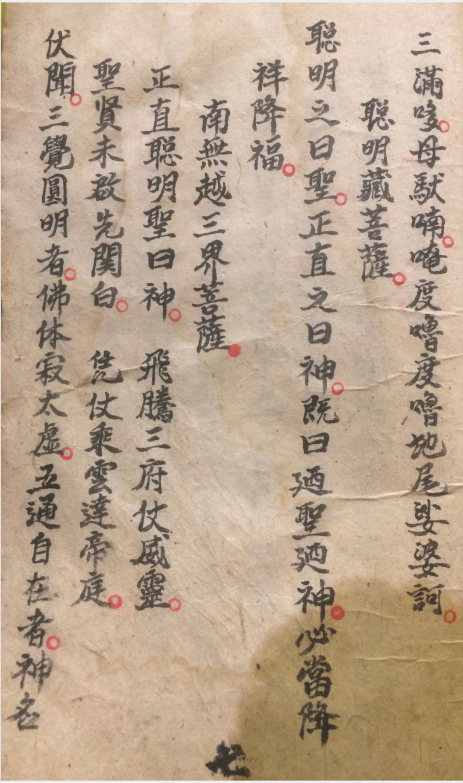 三滿哆母馱喃唵度嚕度嚕地尾娑婆訶
聰明藏菩薩
聰明之曰聖正直之曰神既曰廼聖廼神必當降
祥降福
南無越三界菩薩
正直聰明聖曰神 飛騰三府仗威靈
聖賢未啟先関白 凭仗乘雲達帝庭
伏聞三覺圓明者佛体寂太虛五通自在者神名
七